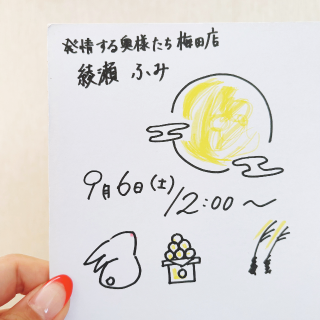 発情する奥様たち梅田店
綾瀬 ふみ
9月6日(土)
12:00〜